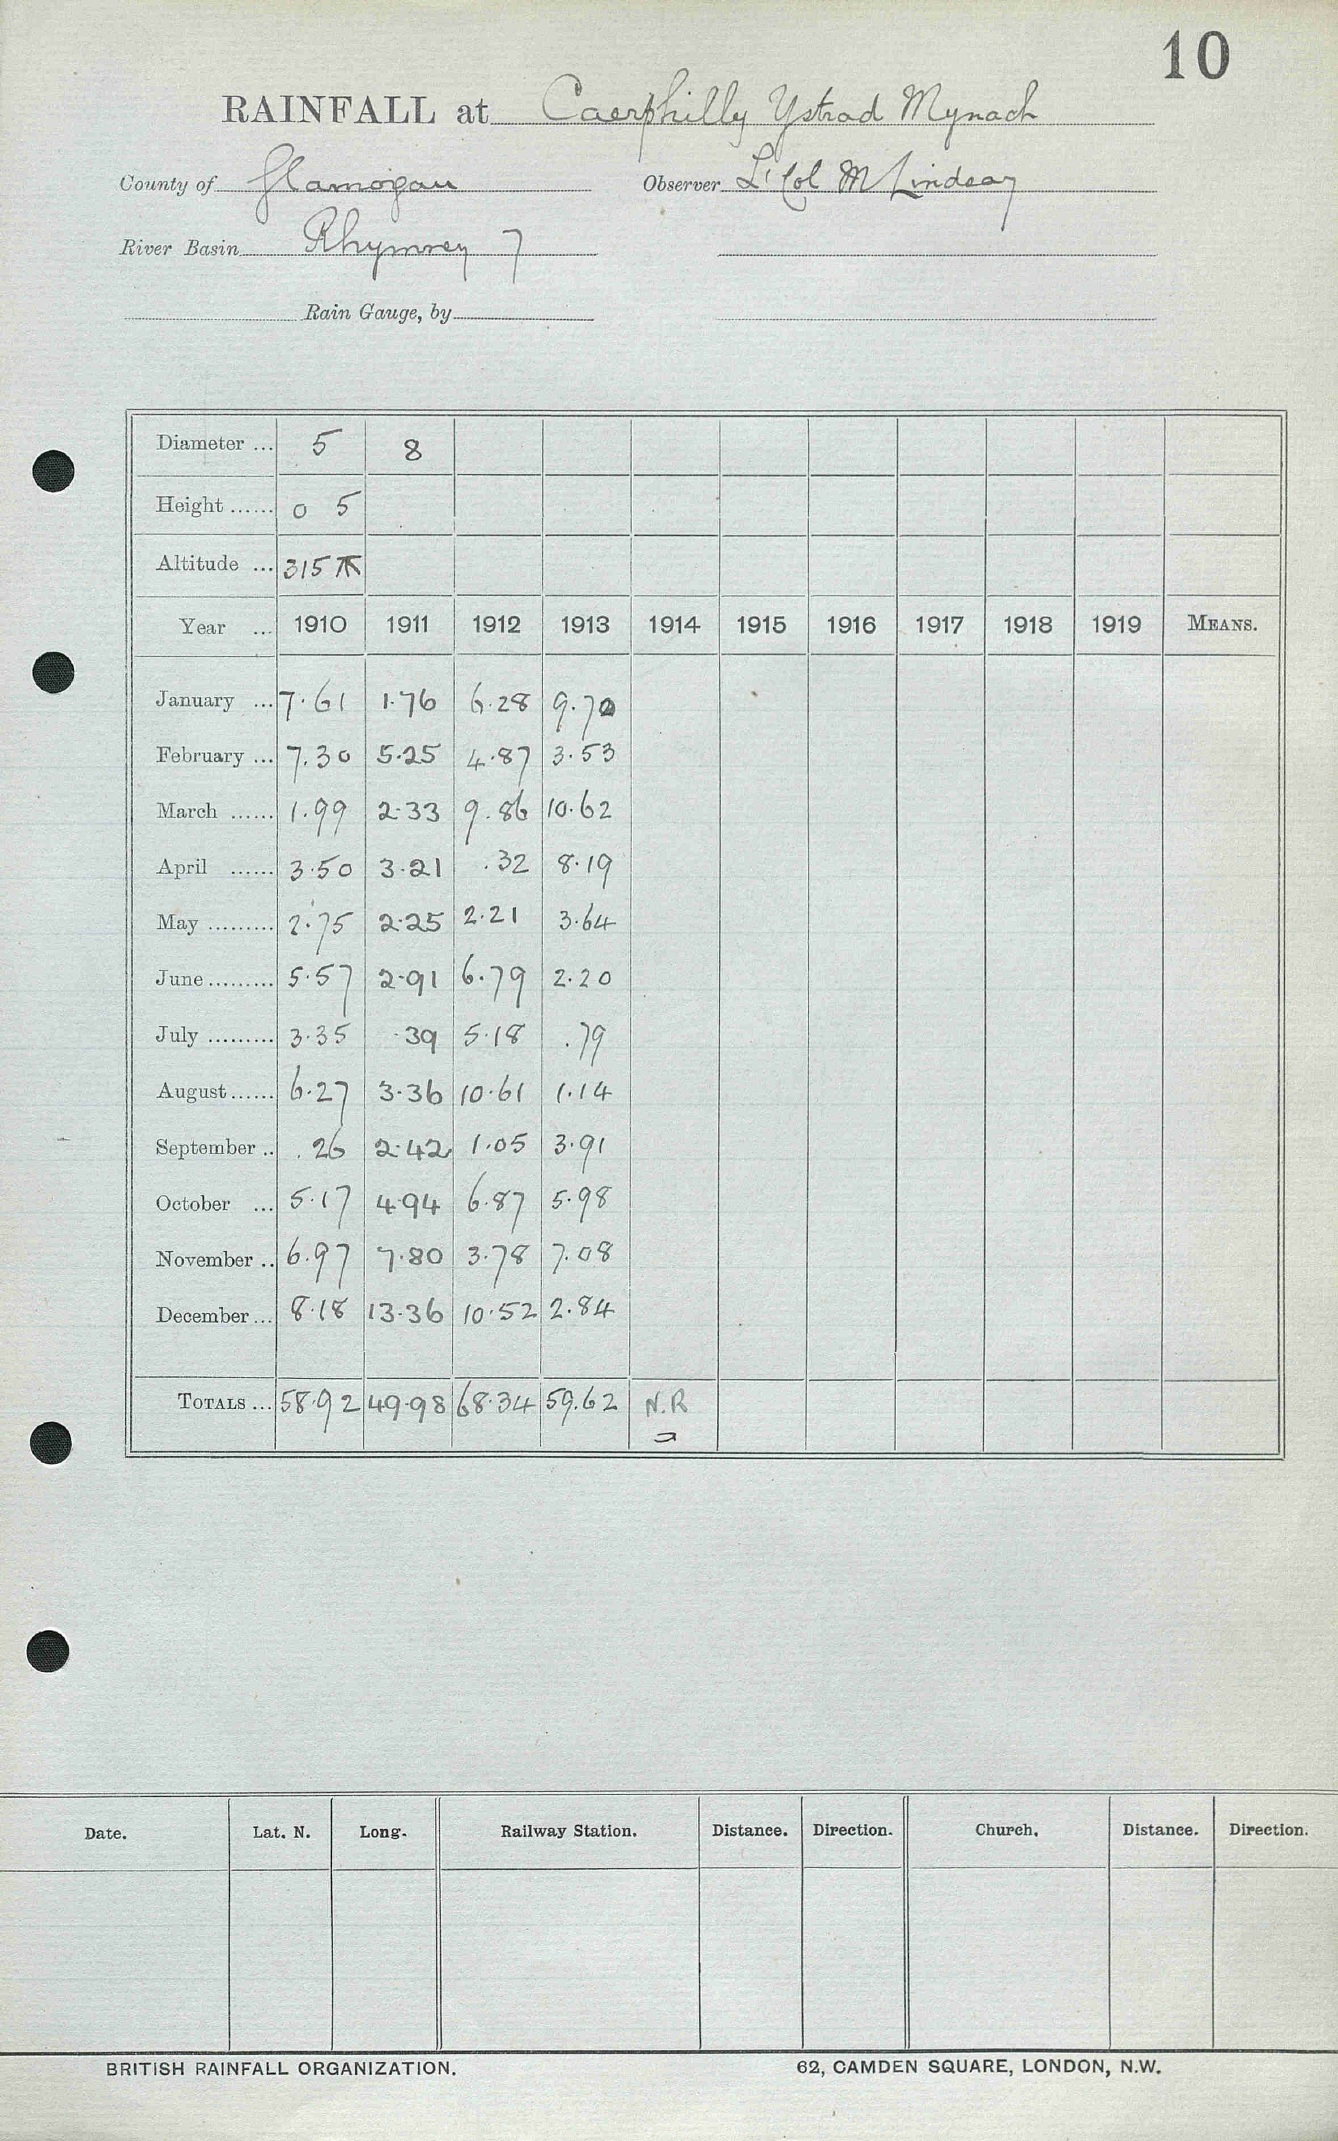 10
RAINFALL at Caerphilly Ystrad Mynach
County of Glamorgan Observer Lt Col M Lindsay
River Basin Rhymney 7
Rain Gauge, by
Diameter ... 5 8
Height ...... 0 5
Altitude ... 315
Year ... 1910 1911 1912 1913 1914 1915 1916 1917 1918 1919 MEANS.
January ... 7.61 1.76 6.28 9.70
February ... 7.30 5.25 4.87 3.53
March ...... 1.99 2.33 9.86 10.62
April ...... 3.50 3.21 .32 8.19
May ......... 2.75 2.25 2.21 3.64
June ......... 5.57 2.91 6.79 2.20
July ......... 3.35 .39 5.18 .79
August ...... 6.27 3.36 10.61 1.14
September .. .26 2.42 1.05 3.91
October ... 5.17 4.94 6.87 5.98
November .. 6.97 7.80 3.78 7.08
December ... 8.18 13.36 10.52 2.84
TOTALS ... 58.92 49.98 68.34 59.62 N.R
Date. Lat. N. Long. Railway Station. Distance. Direction. Church. Distance. Direction.
BRITISH RAINFALL ORGANIZATION. 62, CAMDEN SQUARE, LONDON, N.W.